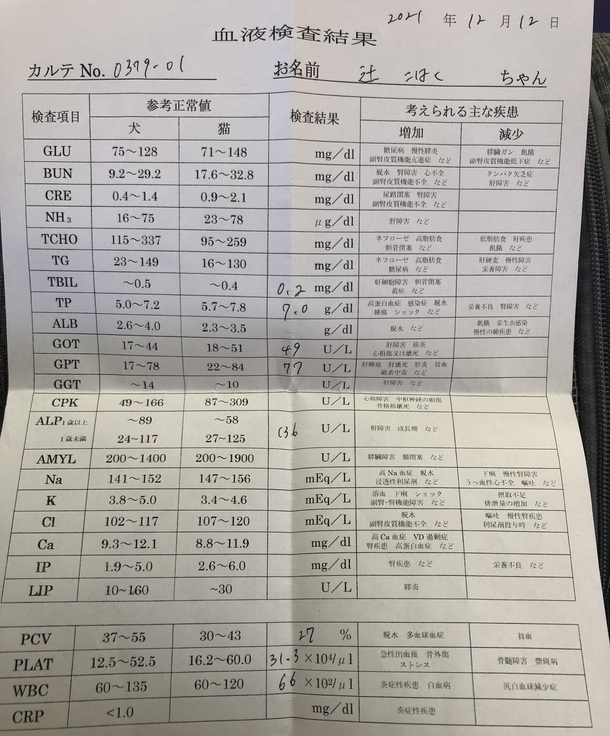 2021 年 12 月 12 日
血液検査結果
カルテ No. 0379-01 お名前 辻 こはく ちゃん
検査項目 参考正常値 検査結果 考えられる主な疾患
犬 猫 増加 減少
GLU 75～128 71～148 mg/dl 糖尿病 慢性膵炎 膵臓ガン 飢餓
副腎皮質機能亢進症 など 副腎皮質機能低下症 など
BUN 9.2～29.2 17.6～32.8 mg/dl 脱水 腎障害 心不全 タンパク欠乏症
副腎皮質機能不全 など 肝障害 など
CRE 0.4～1.4 0.9～2.1 mg/dl 尿路閉塞 腎障害
副腎皮質機能不全 など
NH₃ 16～75 23～78 μg/dl 肝障害 など
TCHO 115～337 95～259 mg/dl ネフローゼ 高脂肪食 低脂肪食 肝疾患
胆管閉塞 など 飢餓 など
TG 23～149 16～130 mg/dl ネフローゼ 高脂肪食 肝硬変 慢性障害
糖尿病 など 栄養障害 など
TBIL ～0.5 ～0.4 0.2 mg/dl 肝細胞障害 胆管閉塞
黄疸 など
TP 5.0～7.2 5.7～7.8 7.0 g/dl 高蛋白血症 感染症 脱水 栄養不良 腎障害 など
腫瘍 ショック など
ALB 2.6～4.0 2.3～3.5 g/dl 脱水 など 飢餓 寄生虫感染
慢性の肺疾患 など
GOT 17～44 18～51 49 U/L 肝障害 筋炎
心損傷又は壊死 など
GPT 17～78 22～84 77 U/L 肝腫瘍 肝壊死 肝炎 貧血
など
GGT ～14 ～10 U/L 肝障害 など
CPK 49～166 87～309 U/L 心筋障害 中枢神経の損傷
骨格筋壊死 など
ALP 1歳以上 ～89 ～58 136 U/L 肝障害 成長期 など
1歳未満 24～117 27～125
AMYL 200～1400 200～1900 U/L 膵臓障害 腸閉塞 など
Na 141～152 147～156 mEq/L 高Na血症 脱水 下痢 慢性腎障害
浸透性利尿剤 など うっ血性心不全 嘔吐 など
K 3.8～5.0 3.4～4.6 mEq/L 溶血 下痢 ショック 摂取不足
副腎・腎機能障害 など 排泄量の増加 など
Cl 102～117 107～120 mEq/L 脱水 嘔吐 慢性腎疾患
副腎皮質機能不全 など 利尿剤投与時 など
Ca 9.3～12.1 8.8～11.9 mg/dl 高Ca血症 VD過剰症
腎疾患 高蛋白血症 など
IP 1.9～5.0 2.6～6.0 mg/dl 腎疾患 など 栄養不良 など
LIP 10～160 ～30 U/L 膵炎
PCV 37～55 30～43 27 % 脱水 多血球血症 貧血
PLAT 12.5～52.5 16.2～60.0 31.3 ×10⁴/μl 急性出血後 骨外傷 骨髄障害 紫斑病
ストレス
WBC 60～135 60～120 66 ×10²/μl 炎症性疾患 白血病 汎白血球減少症
CRP <1.0 mg/dl 炎症性疾患